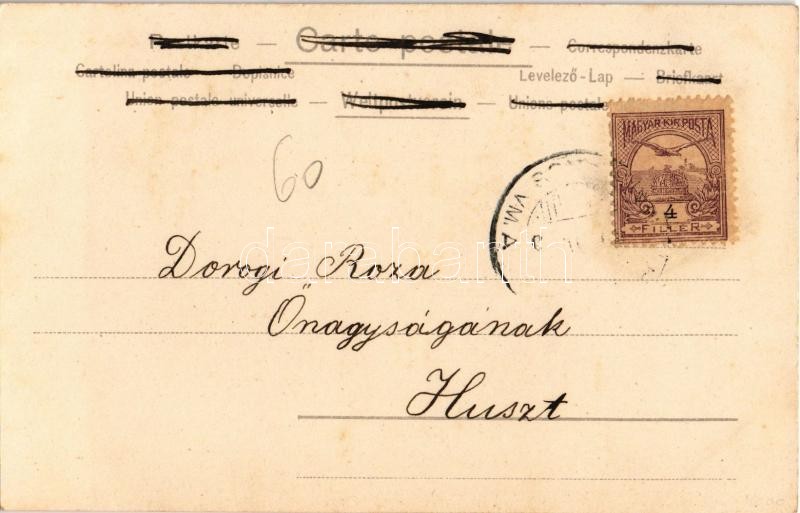 Postkarte — Carte postale — Correspondenzkarte
Cartolina postale — Dopisnice Levelező-Lap — Briefkaart
Union postale universelle — Weltpostverein — Unione postale
MAGYAR·KIR·POSTA
4
FILLER
VM. A
60
Dorogi Roza
Őnagyságának
Huszt
darabanth